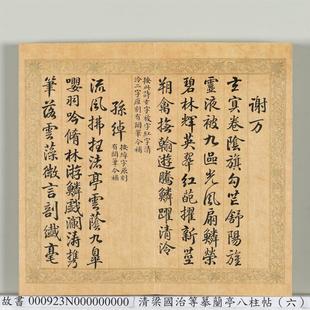 謝万
玄冥卷陰旗勾芒舒陽旌
靈液被九區光風扇鱗榮
碧林輝英翠紅葩擢新莖
翔禽撫翰遊騰鱗躍清泠
按此詩玄字放字紅字清
泠二字原刻有闕筆今補
孫綽
按綽字原刻
有闕筆今補
流風拂枉渚亭雲蔭九皋
嚶羽吟脩林游鱗戲瀾濤攜
筆落雲藻微言剖纖毫
故書 000923N000000000 清梁國治等摹蘭亭八柱帖（六）